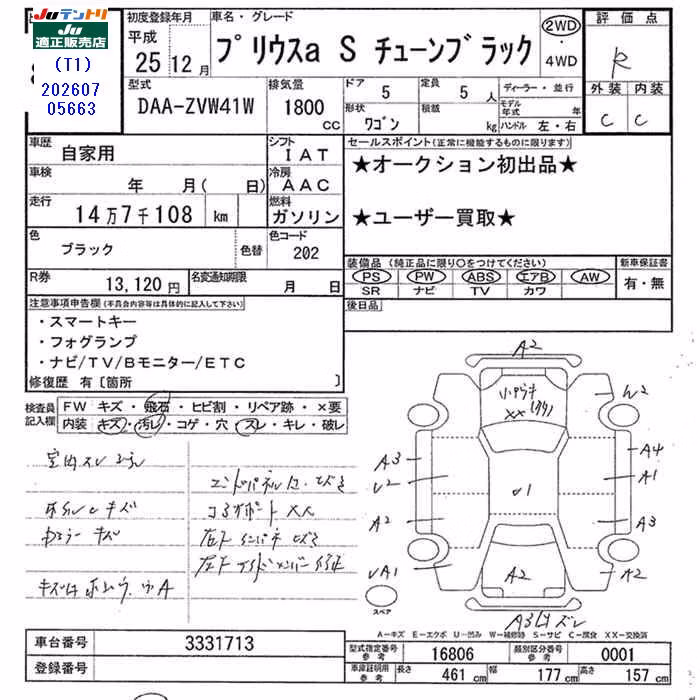 JUテントリ
JU
適正販売店
(T1)
202607
05663
初度登録年月
平成
25 12 月
車名・グレード
プリウスa S チューンブラック
2WD
・
4WD
評価点
R
外装 内装
C C
型式
DAA-ZVW41W
排気量
1800
CC
ドア
5
定員
5 人
形状
ワゴン
積載
kg
ディーラー・並行
モデル年式 年
ハンドル 左・右
車歴
自家用
シフト
IAT
車検
年 月( 日)
冷房
AAC
走行
14万7千108 km
燃料
ガソリン
色
ブラック
色替
色コード
202
R券
13,120円
名変通知期限
月 日
セールスポイント(正常に機能するものに限ります)
★オークション初出品★
★ユーザー買取★
装備品(純正品に限り○をつけてください)
PS PW ABS エアB AW
SR ナビ TV カワ
新車保証書
有・無
後日品
注意事項申告欄(不具合内容等は具体的に記入して下さい)
・スマートキー
・フォグランプ
・ナビ/TV/Bモニター/ETC
修復歴 有〔箇所 〕
検査員
記入欄
FW キズ・飛石・ヒビ割・リペア跡・×要
内装 キズ・汚レ・コゲ・穴・スレ・キレ・破レ
A2
XX
W2
A3
A4
U2
A1
U1
A2
A3
A2
A2
スペア
A-キズ E-エクボ U-凹み W-補修跡 S-サビ C-腐食 XX-交換済
車台番号
3331713
登録番号
型式指定番号
参考
16806
類別区分番号
参考
0001
車庫証明用
参考
長さ
461 cm
幅
177 cm
高さ
157 cm